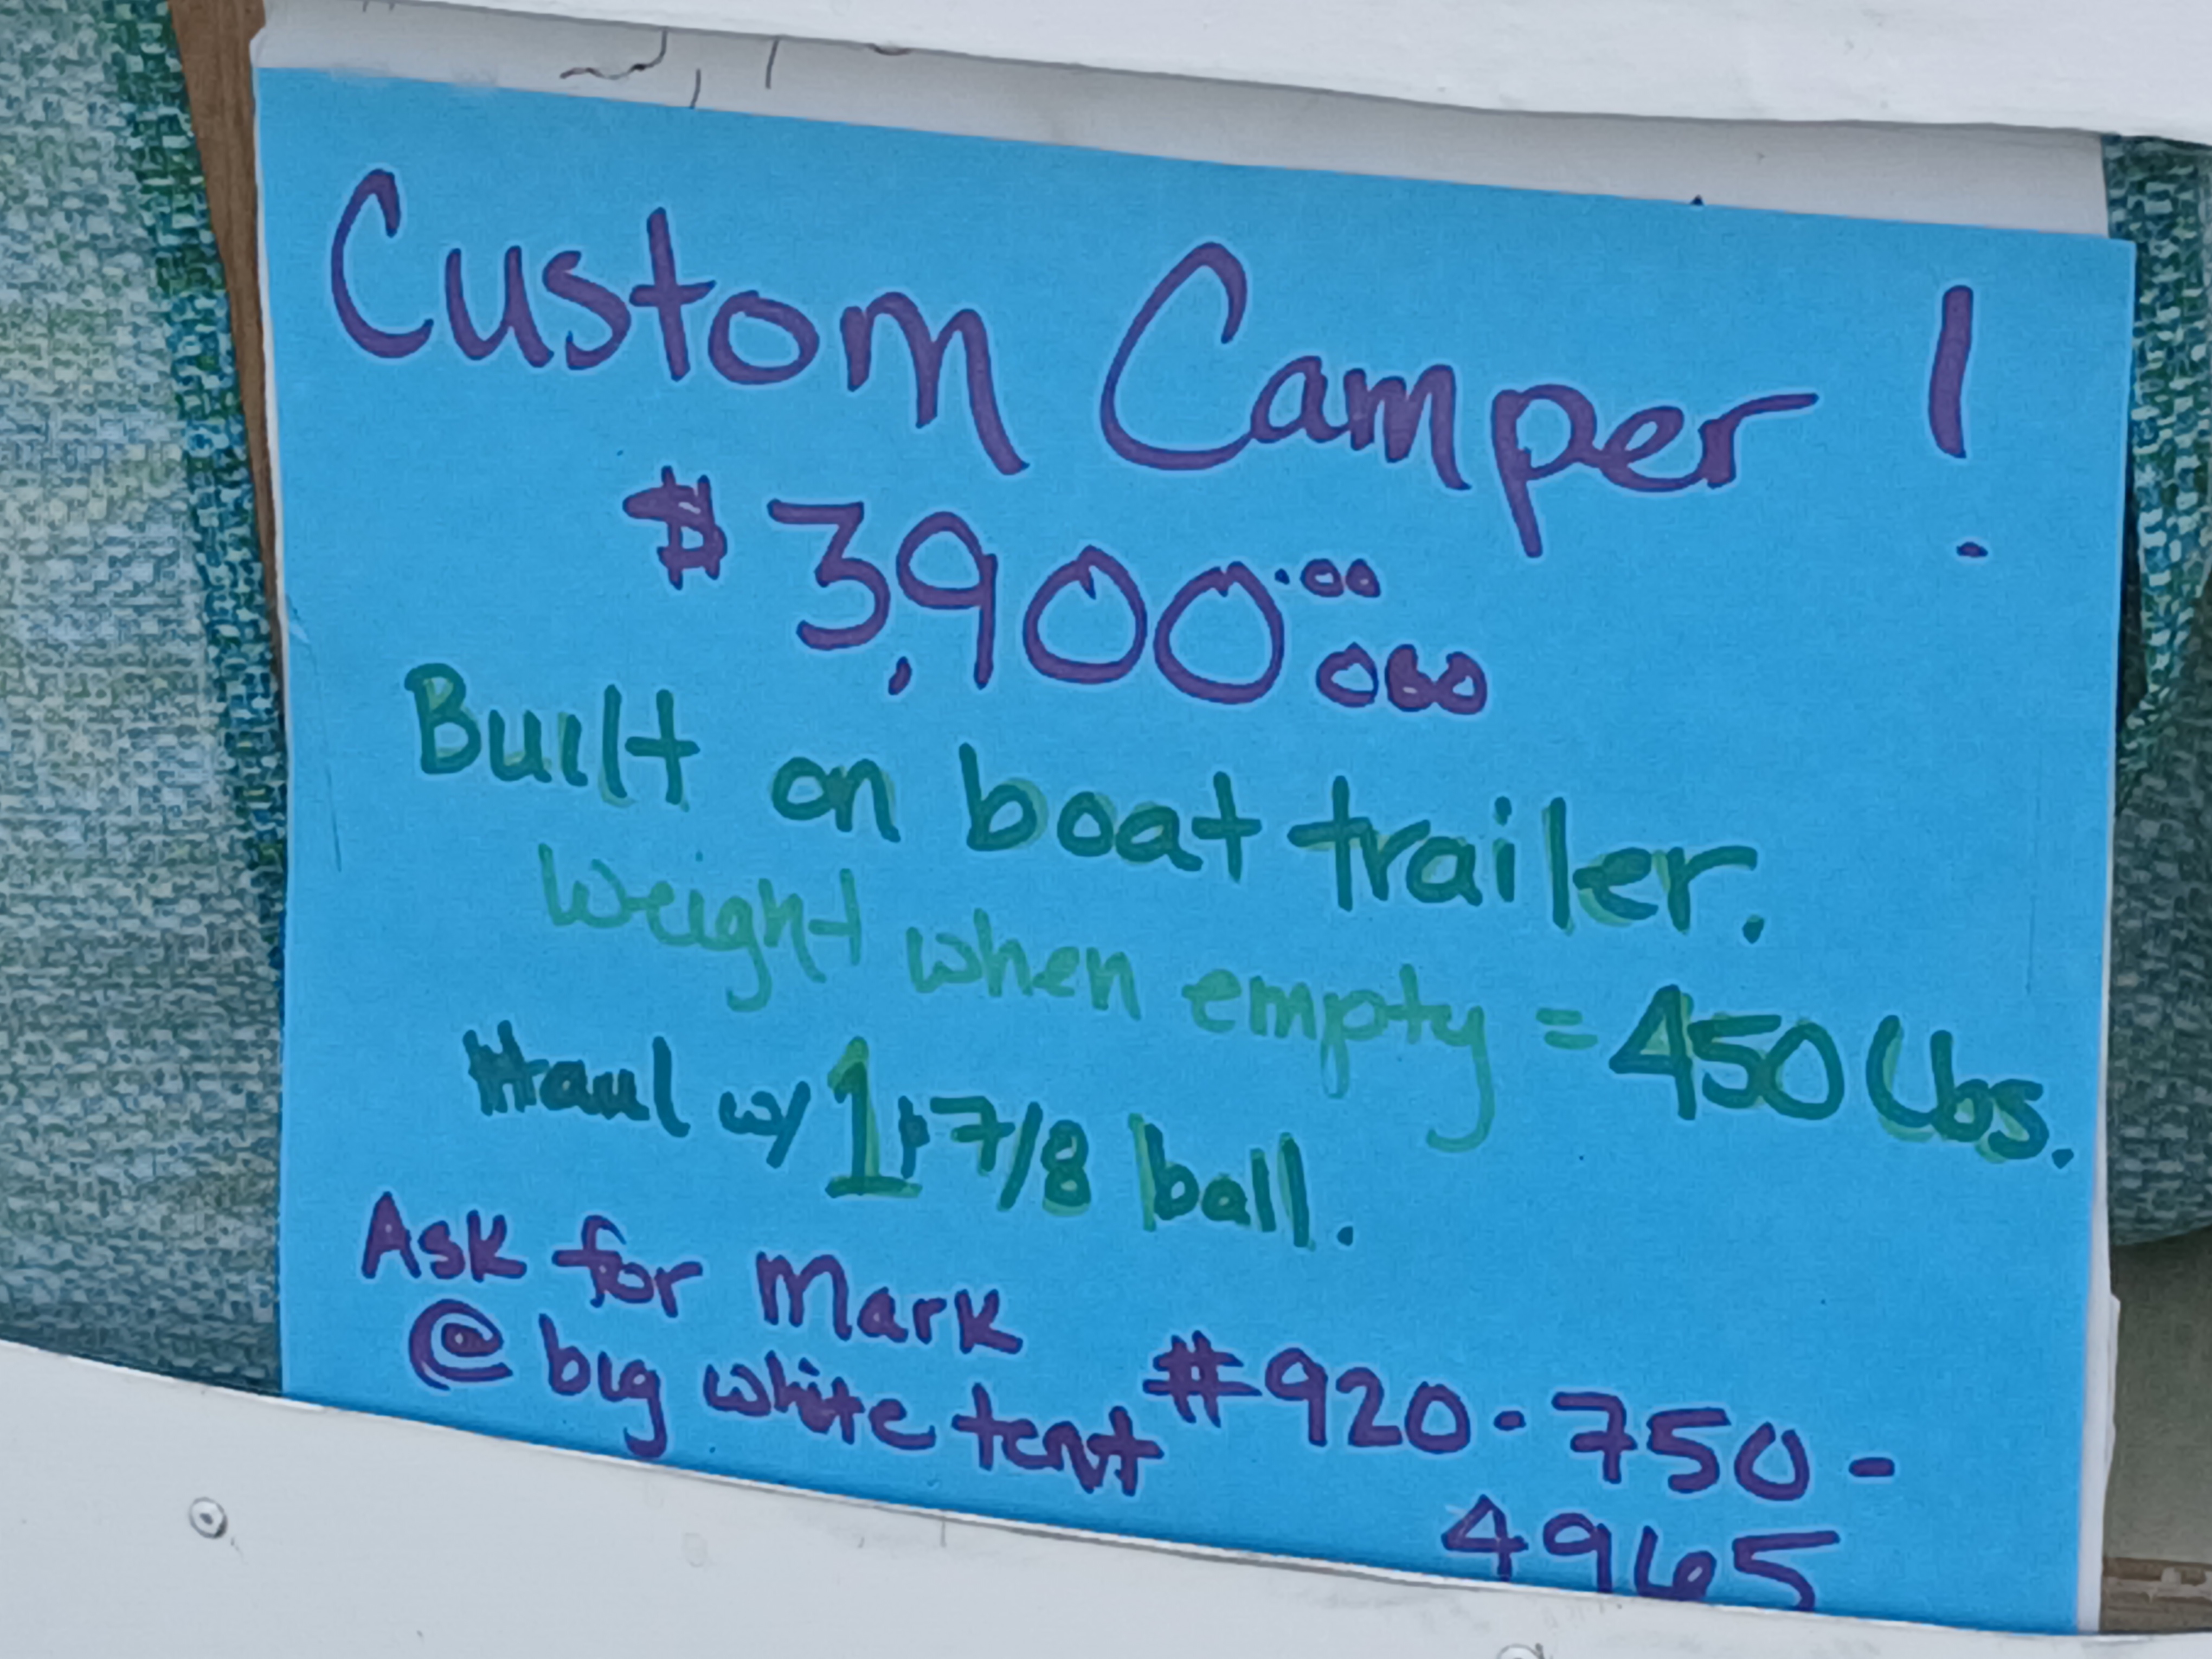 Custom Camper!
$3,900.00
OBO
Built on boat trailer.
Weight when empty = 450 Lbs.
Haul w/ 1+7/8 ball.
Ask for Mark
@ big white tent #920-750-
4965